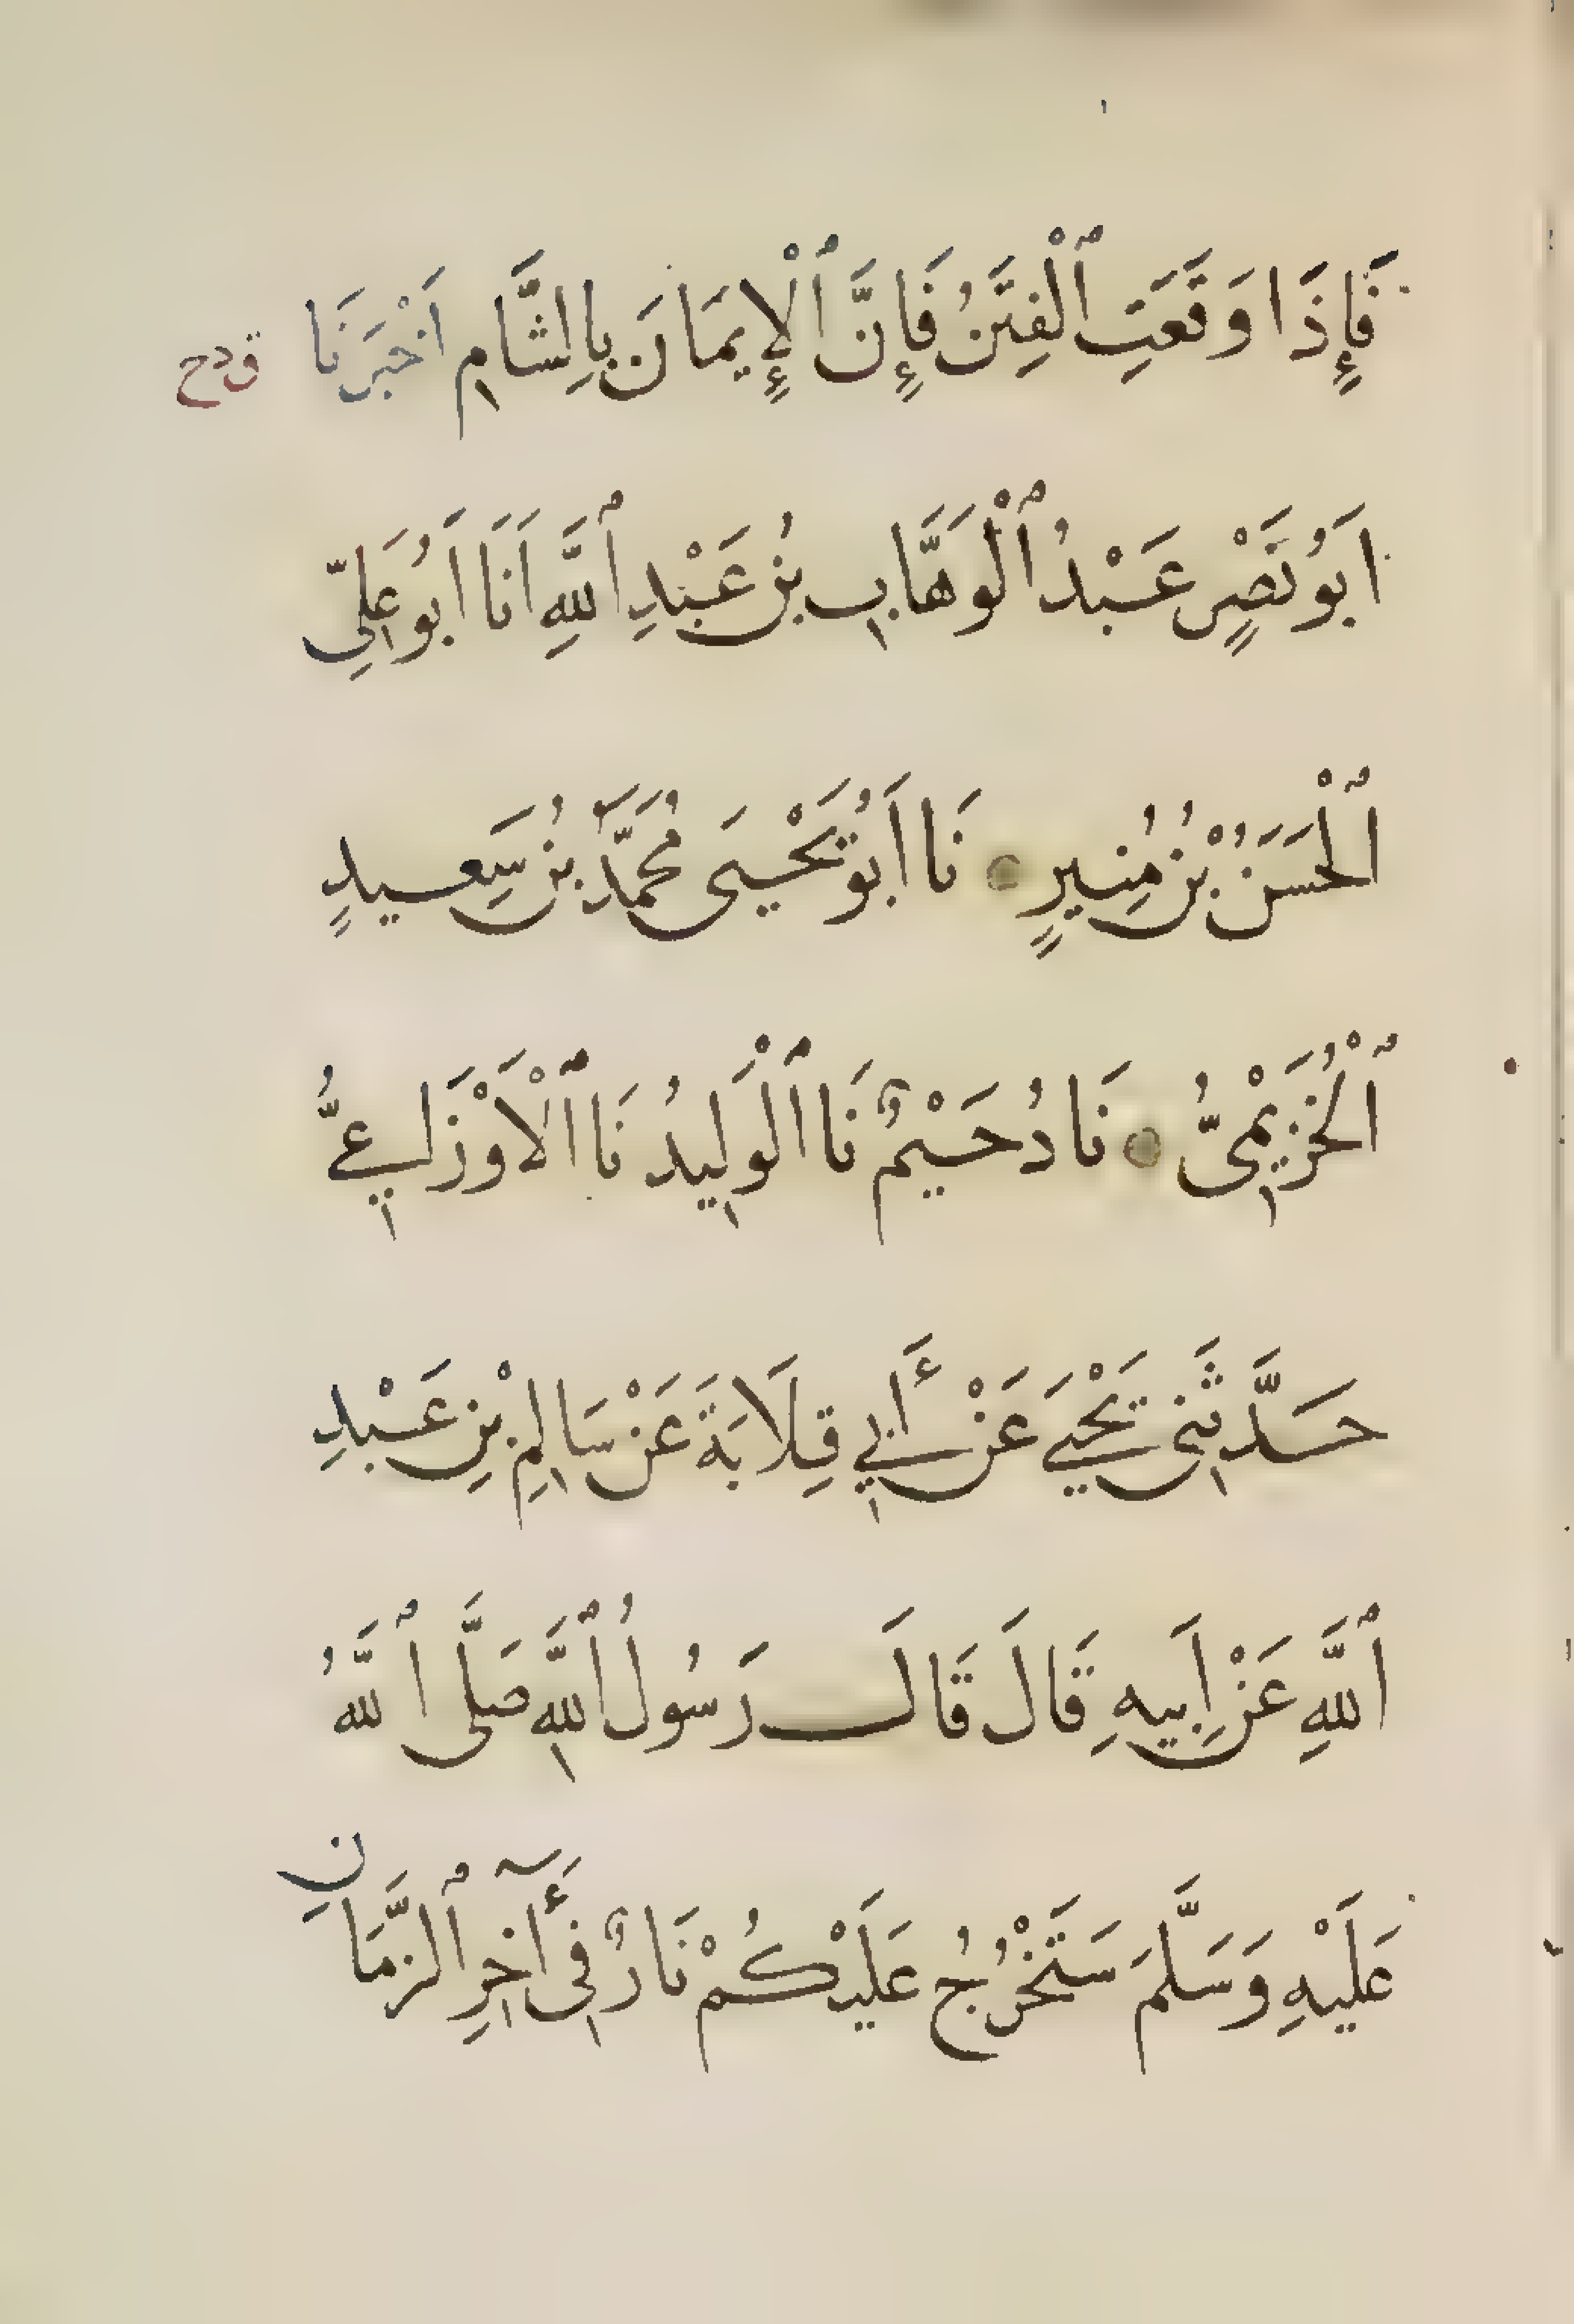 فَإِذَا وَقَعَتِ ٱلْفِتَنُ فَإِنَّ ٱلْإِيمَانَ بِالِشَّامِ اَخْبَرَنَا
اَبُو نَصْرٍ عَبْدُ ٱلْوَهَّابِ بْنُ عَبْدِ ٱللَّهِ اَنَا اَبُو عَلِيّ
ٱلْحَسَنُ بْنُ مُنِيرٍ نَا اَبُو يَحْيَى مُحَمَّدُ بْنُ سَعِيدٍ
ٱلْخُرَيْمِىُّ نَا دُحَيْمٌ نَا ٱلْوَلِيدُ نَا ٱلْاَوْزَاعِىُّ
حَدَّثَنِى يَحْيَى عَنْ أَبِي قِلَابَةَ عَنْ سَالِمِ بْنِ عَبْدِ
ٱللَّهِ عَنْ اَبِيهِ قَالَ قَالَ رَسُولُ ٱللَّهِ صَلَّى ٱللَّهُ
عَلَيْهِ وَسَلَّمَ سَتَخْرُجُ عَلَيْكُمْ نَارٌ فِى أَخِرِ ٱلزَّمَانِ